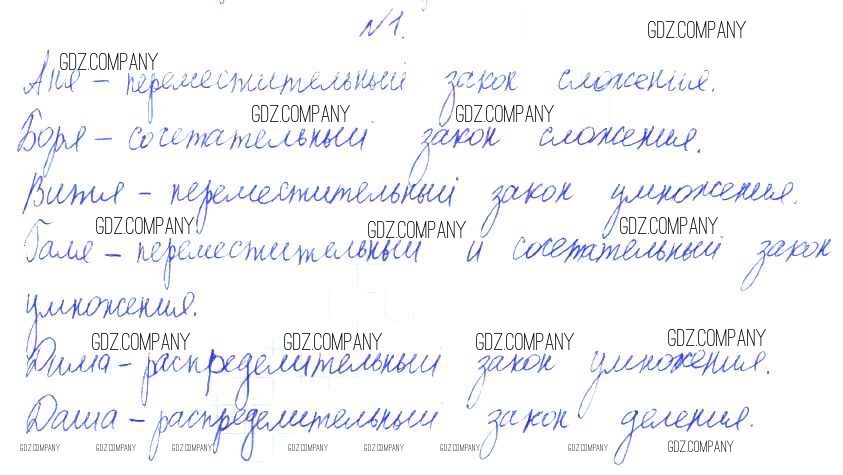 №1.
GDZ.COMPANY
GDZ.COMPANY
Аня – переместительный закон сложения.
GDZ.COMPANY GDZ.COMPANY
Боря – сочетательный закон сложения.
Витя – переместительный закон умножения.
GDZ.COMPANY GDZ.COMPANY GDZ.COMPANY
Галя – переместительный и сочетательный закон
умножения.
GDZ.COMPANY GDZ.COMPANY GDZ.COMPANY GDZ.COMPANY
Дима – распределительный закон умножения.
Даша – распределительный закон деления.
GDZ.COMPANY GDZ.COMPANY GDZ.COMPANY GDZ.COMPANY GDZ.COMPANY GDZ.COMPANY GDZ.COMPANY GDZ.COMPANY